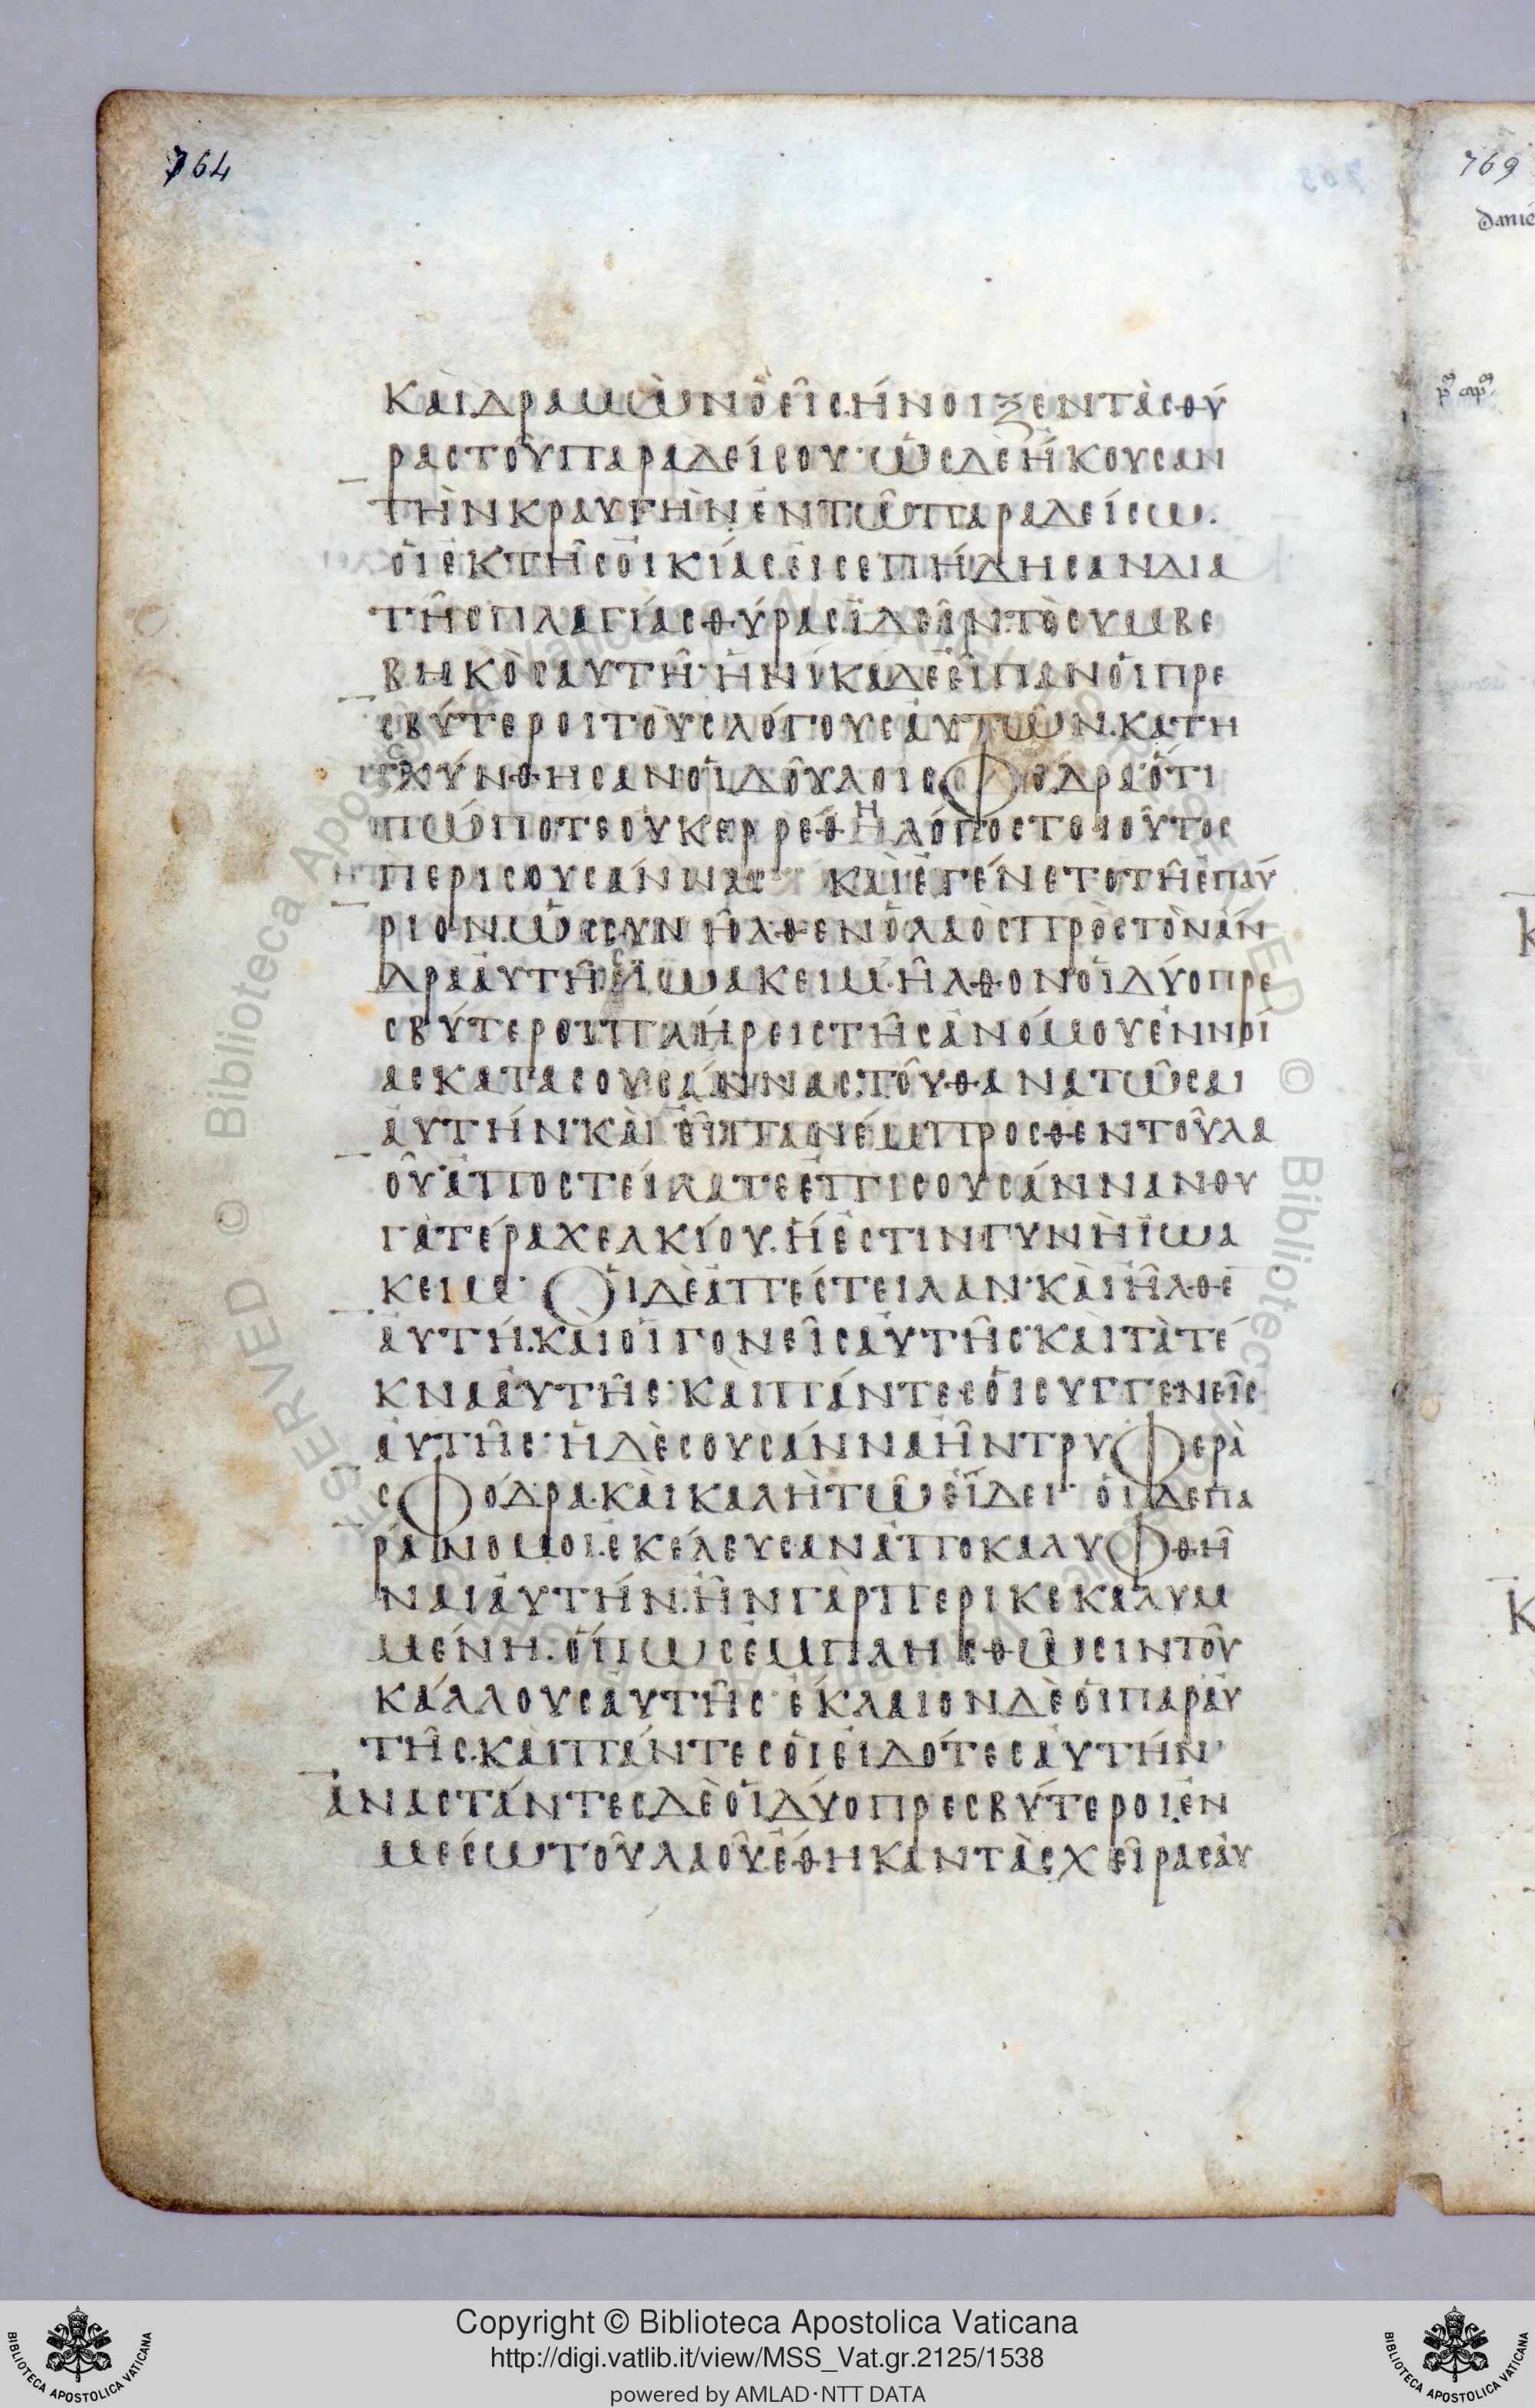 764
769
danie
καὶ δραμὼν ὁ εἷς. ἤνοιξεν τὰς θύ
ρας τοῦ παραδείσου· ὡς δὲ ἤκουσαν
τὴν κραυγὴν ἐν τῷ παραδείσω.
οἱ ἐκ τῆς οἰκίας εἰσεπήδησαν δια
τῆς πλαγίας θύρας ἰδεῖν. τὸ συμβε
βηκὸς αὐτῆ· ἡνίκα δὲ εἶπαν οἱ πρε
σβύτεροι τοὺς λόγους αὐτῶν. κατη
σχύνθησαν οἱ δοῦλοι σφόδρα· ὅτι
πώποτε οὐκ ερρέθη λόγος τοιοῦτος
περι σουσάννας καὶ ἐγένετο τῆ ἐπαύ
ριον. ὡς συνῆλθεν ὁ λαὸς πρὸς τὸν ἄν
δρα αὐτῆς ἰωακειμ· ἦλθον οἱ δύο πρε
σβύτεροι πλήρεις τῆς ἀνόμου ἐννοί
ας κατα σουσάννας. τοῦ θανατῶσαι
αὐτήν· καὶ εἶπαν ἔμπροσθεν τοῦ λα
οῦ· ἀποστείλατε ἐπι σουσάνναν θυ
γατέρα χελκίου. ἥ ἐστιν γυνὴ ἰωα
κειμ· Οἱ δὲ ἀπέστειλαν· καὶ ἦλθε
αὐτή. καὶ οἱ γονεῖς αὐτῆς· καὶ τὰ τέ
κνα αὐτῆς· καὶ πάντες οἱ συγγενεῖς
αὐτῆς· ἡ δὲ σουσάννα ἦν τρυφερὰ
σφόδρα. καὶ καλὴ τῶ εἴδει· οἱ δε πα
ράνομοι. ἐκέλευσαν ἀποκαλυφθῆ
ναι αὐτήν. ἦν γὰρ περικεκαλυμ
μένη. ὅπως ἐμπλησθῶσιν τοῦ
κάλλους αὐτῆς ἔκλαιον δὲ οἱ παρ αὐ
τῆς. καὶ πάντες οἱ εἰδότες αὐτήν·
ἀναστάντες δὲ οἱ δύο πρεσβύτεροι. ἐν
μέσω τοῦ λαοῦ. ἔθηκαν τὰς χεῖρας αὐ
Copyright © Biblioteca Apostolica Vaticana
http://digi.vatlib.it/view/MSS_Vat.gr.2125/1538
powered by AMLAD·NTT DATA
BIBLIOTECA APOSTOLICA VATICANA
BIBLIOTECA APOSTOLICA VATICANA